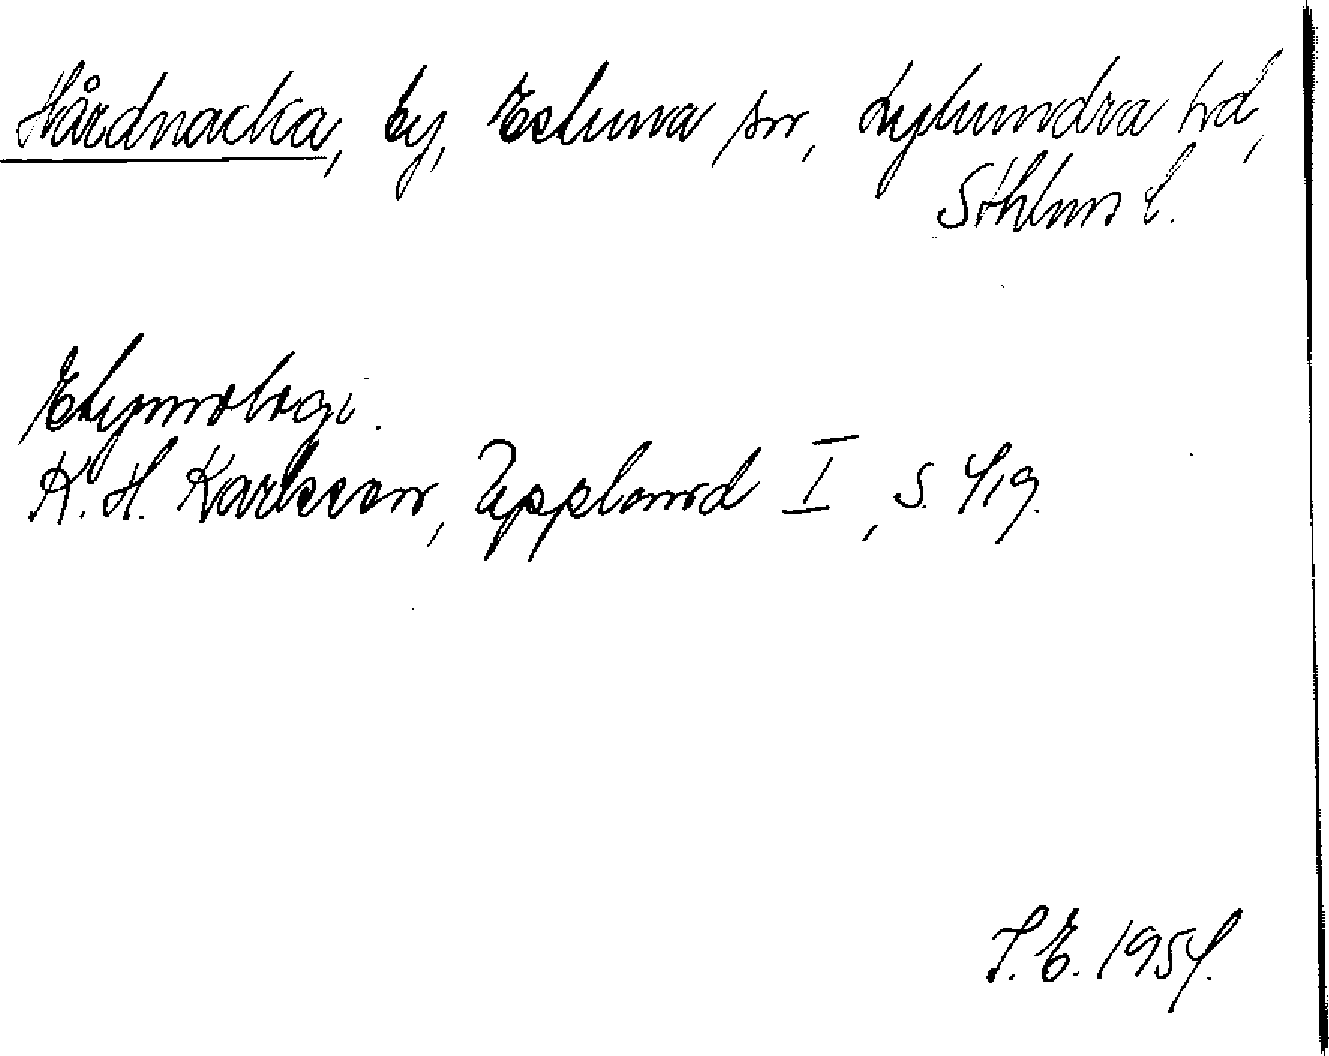 Hårdnacka, by, Estuna sn, Lyhundra hd,
Sthlms l.
Etymologi.
K. H. Karlsson, Uppland I, s. 419.
T. E. 1954.